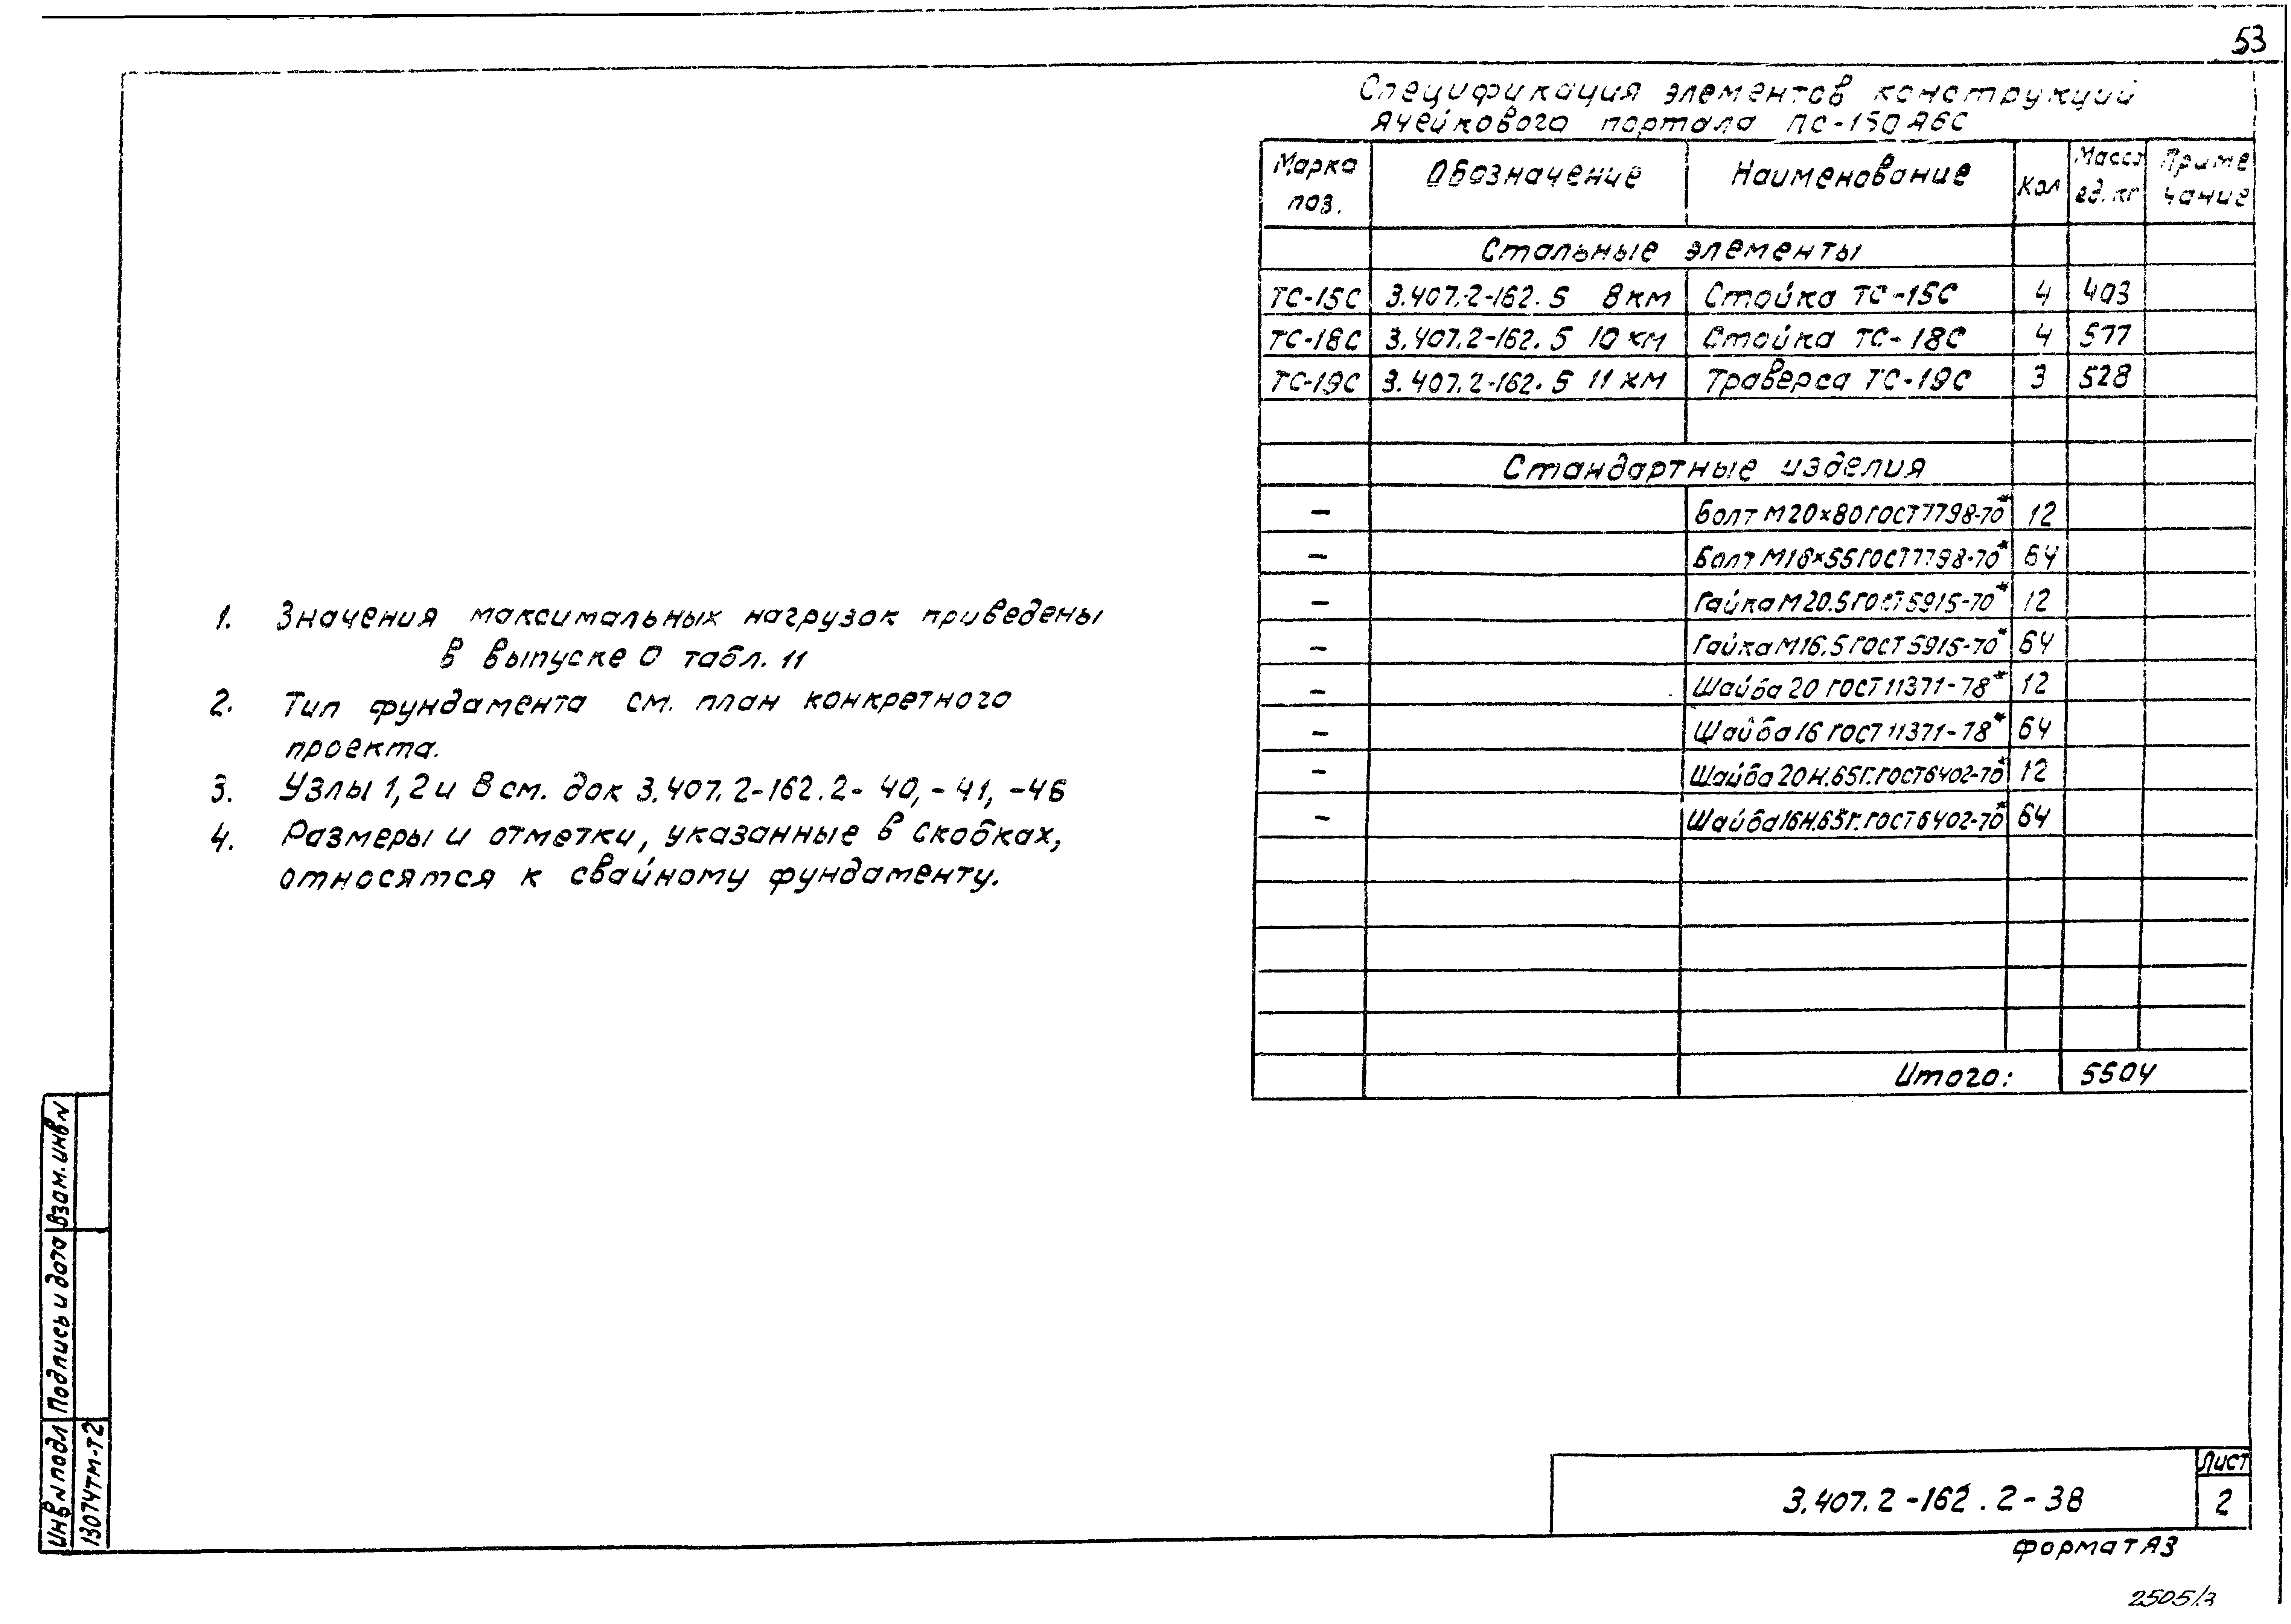 53
Спецификация элементов конструкций
ячейкового портала ПС-150Я6С
Марка поз. Обозначение Наименование Кол Масса ед. кг Приме чание
Стальные элементы
ТС-15С 3.407.2-162.5 8км Стойка ТС-15С 4 403
ТС-18С 3.407.2-162.5 10 км Стойка ТС-18С 4 577
ТС-19С 3.407.2-162.5 11 км Траверса ТС-19С 3 528
Стандартные изделия
– Болт М20×80 ГОСТ 7798-70* 12
– Болт М16×55 ГОСТ 7798-70* 64
– Гайка М20.5 ГОСТ 5915-70* 12
– Гайка М16.5 ГОСТ 5915-70* 64
– Шайба 20 ГОСТ 11371-78* 12
– Шайба 16 ГОСТ 11371-78* 64
– Шайба 20Н.65Г. ГОСТ 6402-70* 12
– Шайба 16Н.65Г. ГОСТ 6402-70* 64
Итого: 5504
1. Значения максимальных нагрузок приведены
в выпуске 0 табл. 11
2. Тип фундамента см. план конкретного
проекта.
3. Узлы 1, 2 и 8 см. док 3.407.2-162.2-40, -41, -46
4. Размеры и отметки, указанные в скобках,
относятся к свайному фундаменту.
Взам. инв N
Подпись и дата
Инв N подл
13074тм-т2
3.407.2-162.2-38
Лист
2
формат А3
2505/3